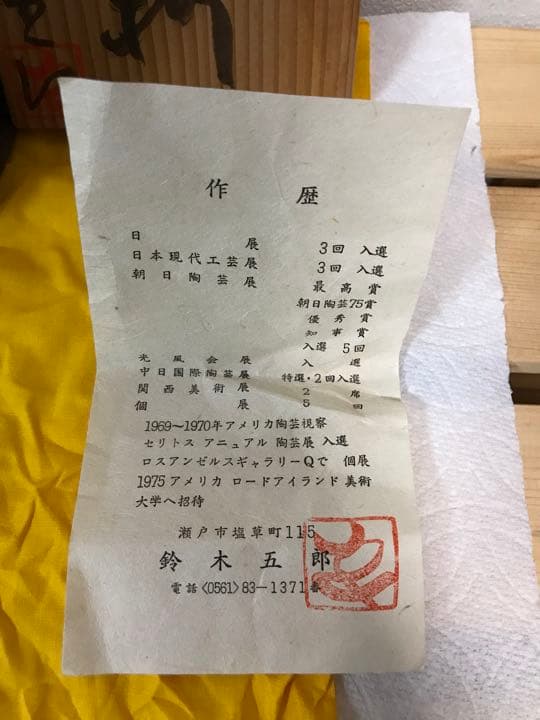 作 歴
日 展 3回 入選
日本現代工芸展 3回 入選
朝日陶芸展 最高賞
朝日陶芸75賞
優秀賞
知事賞
入選 5回
光風会展 入選
中日国際陶芸展 特選・2回入選
関西美術展 2席
個 展 5回
1969〜1970年アメリカ陶芸視察
セリトス アニュアル 陶芸展 入選
ロスアンゼルスギャラリーQで 個展
1975 アメリカ ロードアイランド 美術
大学へ招待
瀬戸市塩草町115
鈴木五郎
電話<0561>83-1371番